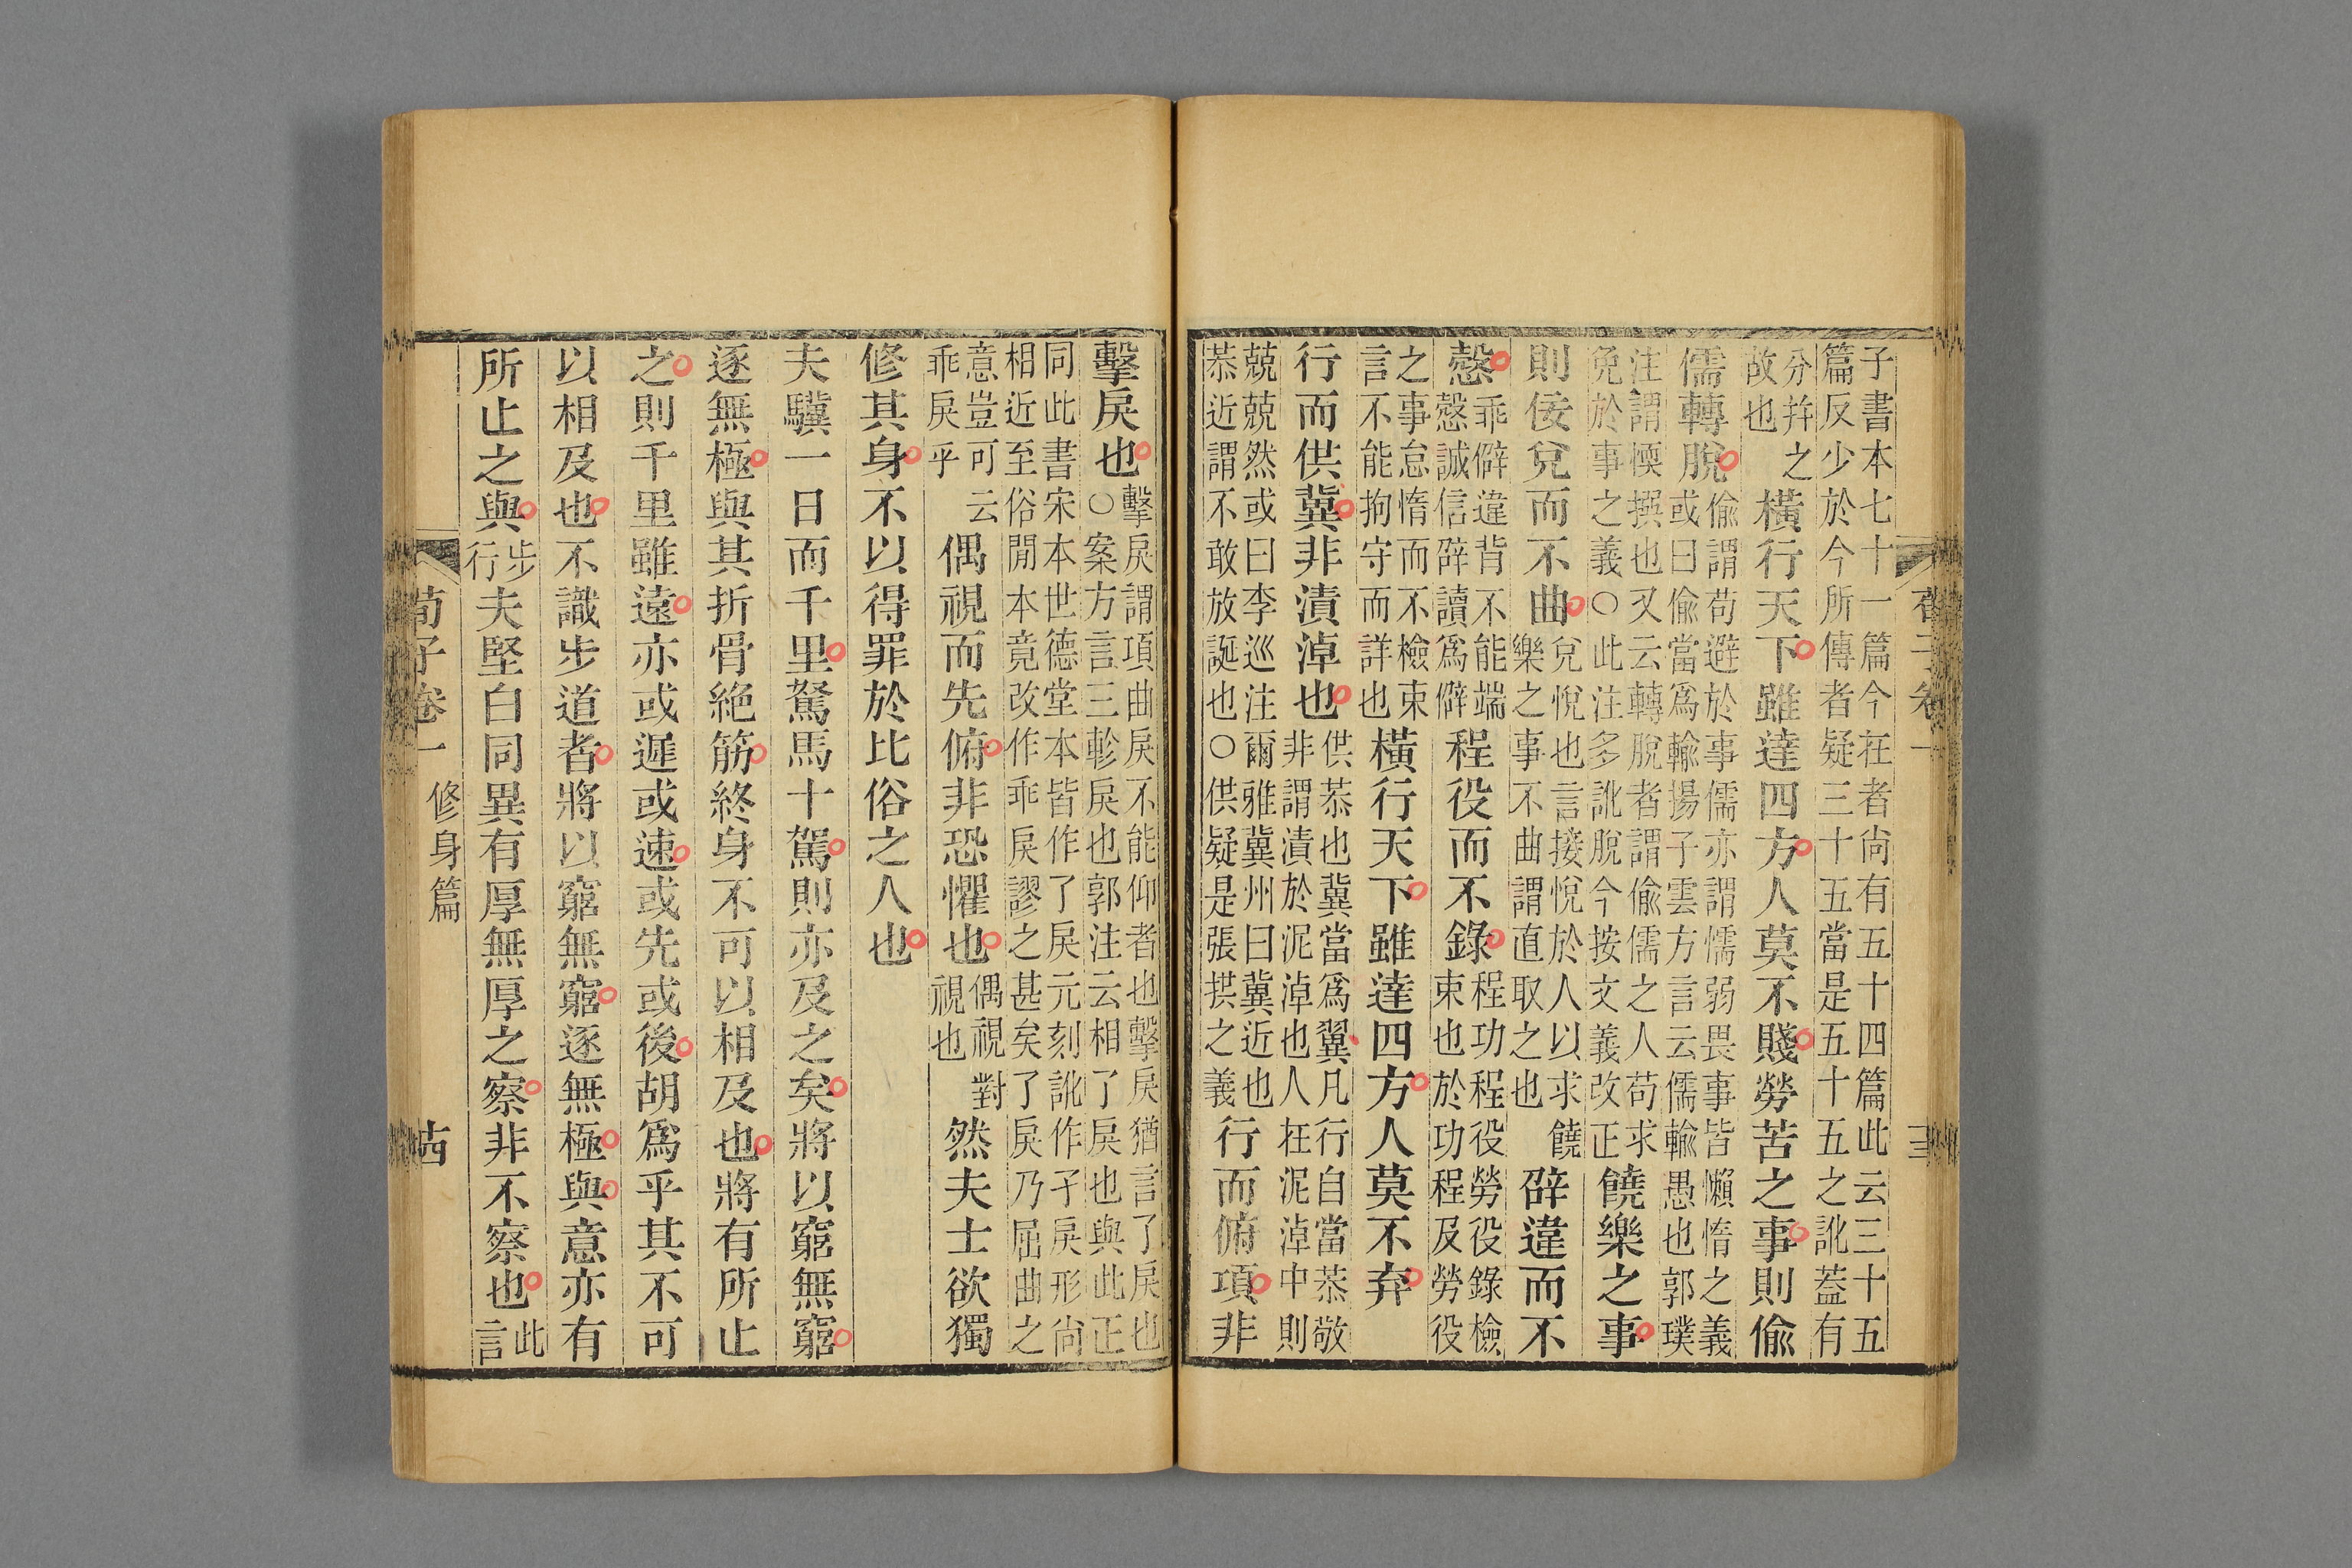 荀子卷一
十三
子書本七十一篇今在者尚有五十四篇此云三十五
篇反少於今所傳者疑三十五當是五十五之訛蓋有
分并之故也橫行天下雖達四方人莫不賤勞苦之事則偷
儒轉脫偷謂苟避於事儒亦謂懦弱畏事皆懶惰之義或曰偷當爲輸揚子雲方言云儒輸愚也郭璞
注謂愞撰也又云轉脫者謂偷儒之人苟求免於事之義○此注多訛脫今按文義改正饒樂之事
則佞兌而不曲兌悅也言接悅於人以求饒樂之事不曲謂直取之也辟違而不
愨乖僻違背不能端愨誠信辟讀爲僻程役而不錄程功程役勞役錄檢束也於功程及勞役
之事怠惰而不檢束言不能拘守而詳也橫行天下雖達四方人莫不弃
行而供冀非漬淖也供恭也冀當爲翼凡行自當恭敬非謂漬於泥淖也人在泥淖中則
兢兢然或曰李巡注爾雅冀州曰冀近也恭近謂不敢放誕也○供疑是張拱之義行而俯項非
擊戾也擊戾謂項曲戾不能仰者也擊戾猶言了戾也○案方言三軫戾也郭注云相了戾也與此正
同此書宋本世德堂本皆作了戾元刻訛作孑戾形尚
相近至俗閒本竟改作乖戾謬之甚矣了戾乃屈曲之
意豈可云乖戾乎偶視而先俯非恐懼也偶視對視也然夫士欲獨
修其身不以得罪於比俗之人也
夫驥一日而千里駑馬十駕則亦及之矣將以窮無窮
逐無極與其折骨絶筋終身不可以相及也將有所止
之則千里雖遠亦或遲或速或先或後胡爲乎其不可
以相及也不識步道者將以窮無窮逐無極與意亦有
所止之與步行夫堅白同異有厚無厚之察非不察也此言
荀子卷一 修身篇
十四